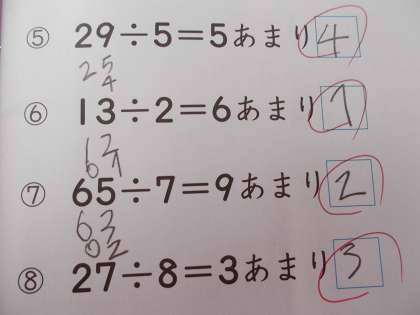 ⑤ 29÷5=5あまり4
25
4
⑥ 13÷2=6あまり1
12
1
⑦ 65÷7=9あまり2
63
2
⑧ 27÷8=3あまり3